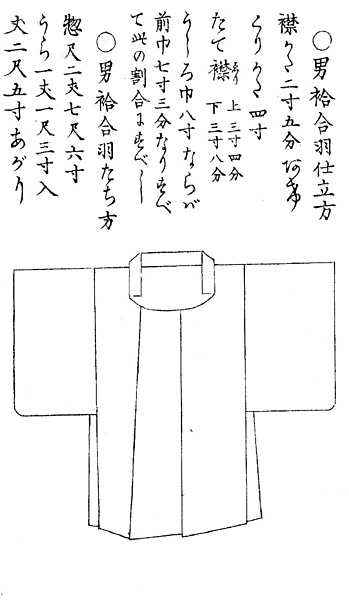 ○男袷合羽仕立方
襟かた二寸五分
くりかた四寸
たて襟 上三寸四分 下三寸八分
うしろ巾八寸ならば
前巾七寸三分なりすべ
て此の割合にすべし
○男袷合羽たち方
惣尺二丈七尺六寸
うら一丈一尺三寸入
丈二尺五寸あがり